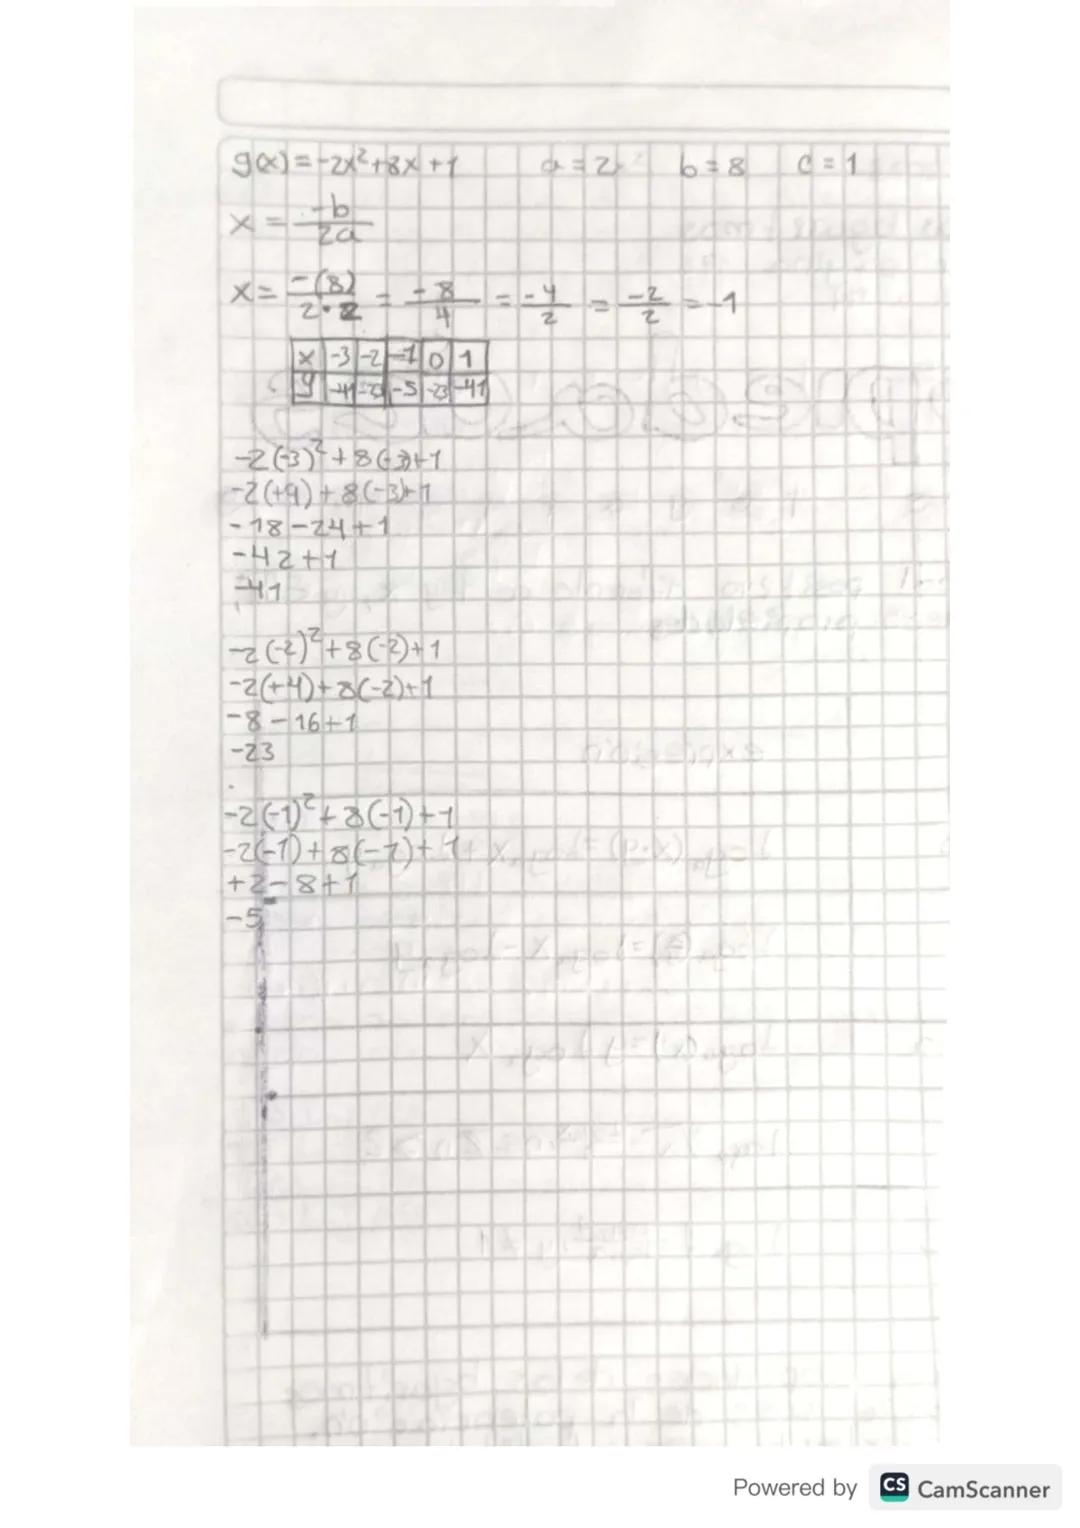 g(x)=-2x²+8x+1 a=2 b=8 c=1
x = -b/2a
x = -(8)/2·2 = -8/4 = -4/2 = -2/2 = -1
x -3 -2 -1 0 1
y -41 -23 -5 -23 -41
-2(-3)²+8(-3)+1
-2(+9)+8(-3)+1
-18-24+1
-42+1
-41
-2(-2)²+8(-2)+1
-2(+4)+8(-2)+1
-8-16+1
-23
-2(-1)²+8(-1)+1
-2(-1)+8(-1)+1
+2-8+1
-5
Powered by CS CamScanner